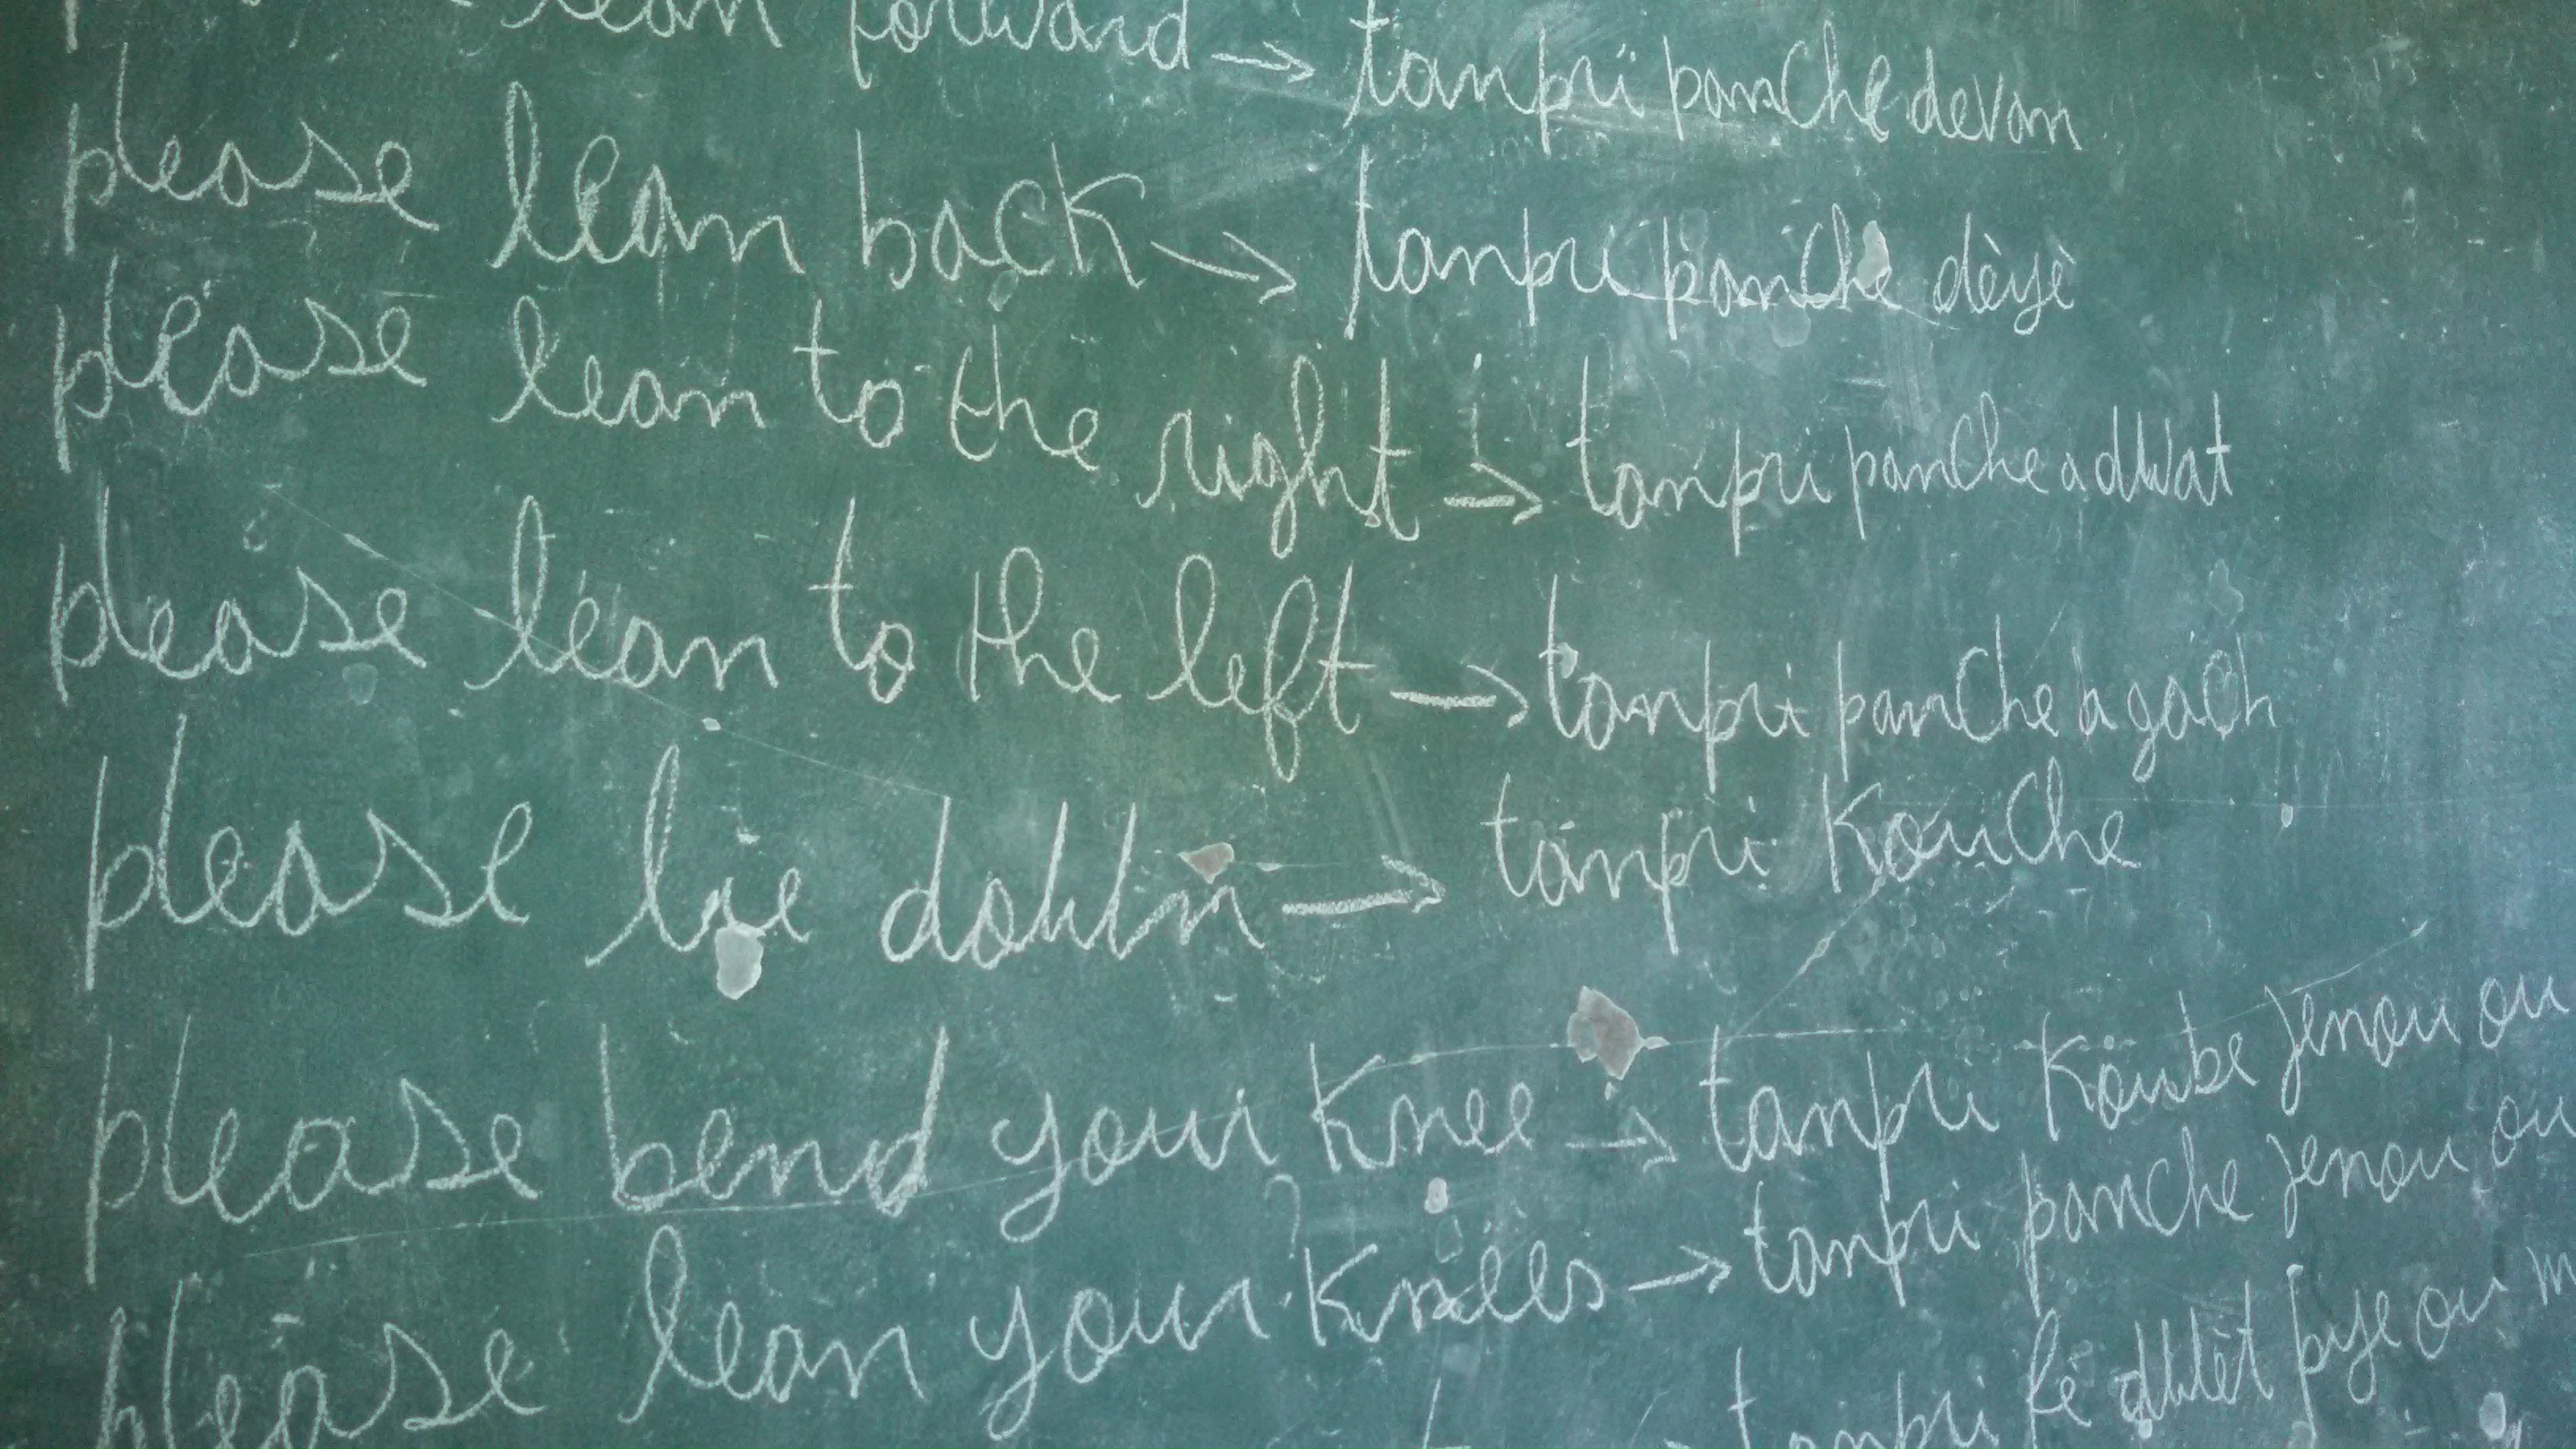 lean forward → tanpri panche devan
please lean back → tanpri panche dèyè
please lean to the right → tanpri panche a dwat
please lean to the left → tanpri panche a gach
please lie down → tanpri Kouche
please bend your Knee → tanpri Koube jenou ou
please lean your Knees → tanpri panche jenou ou
tanpri fè dwèt pye ou